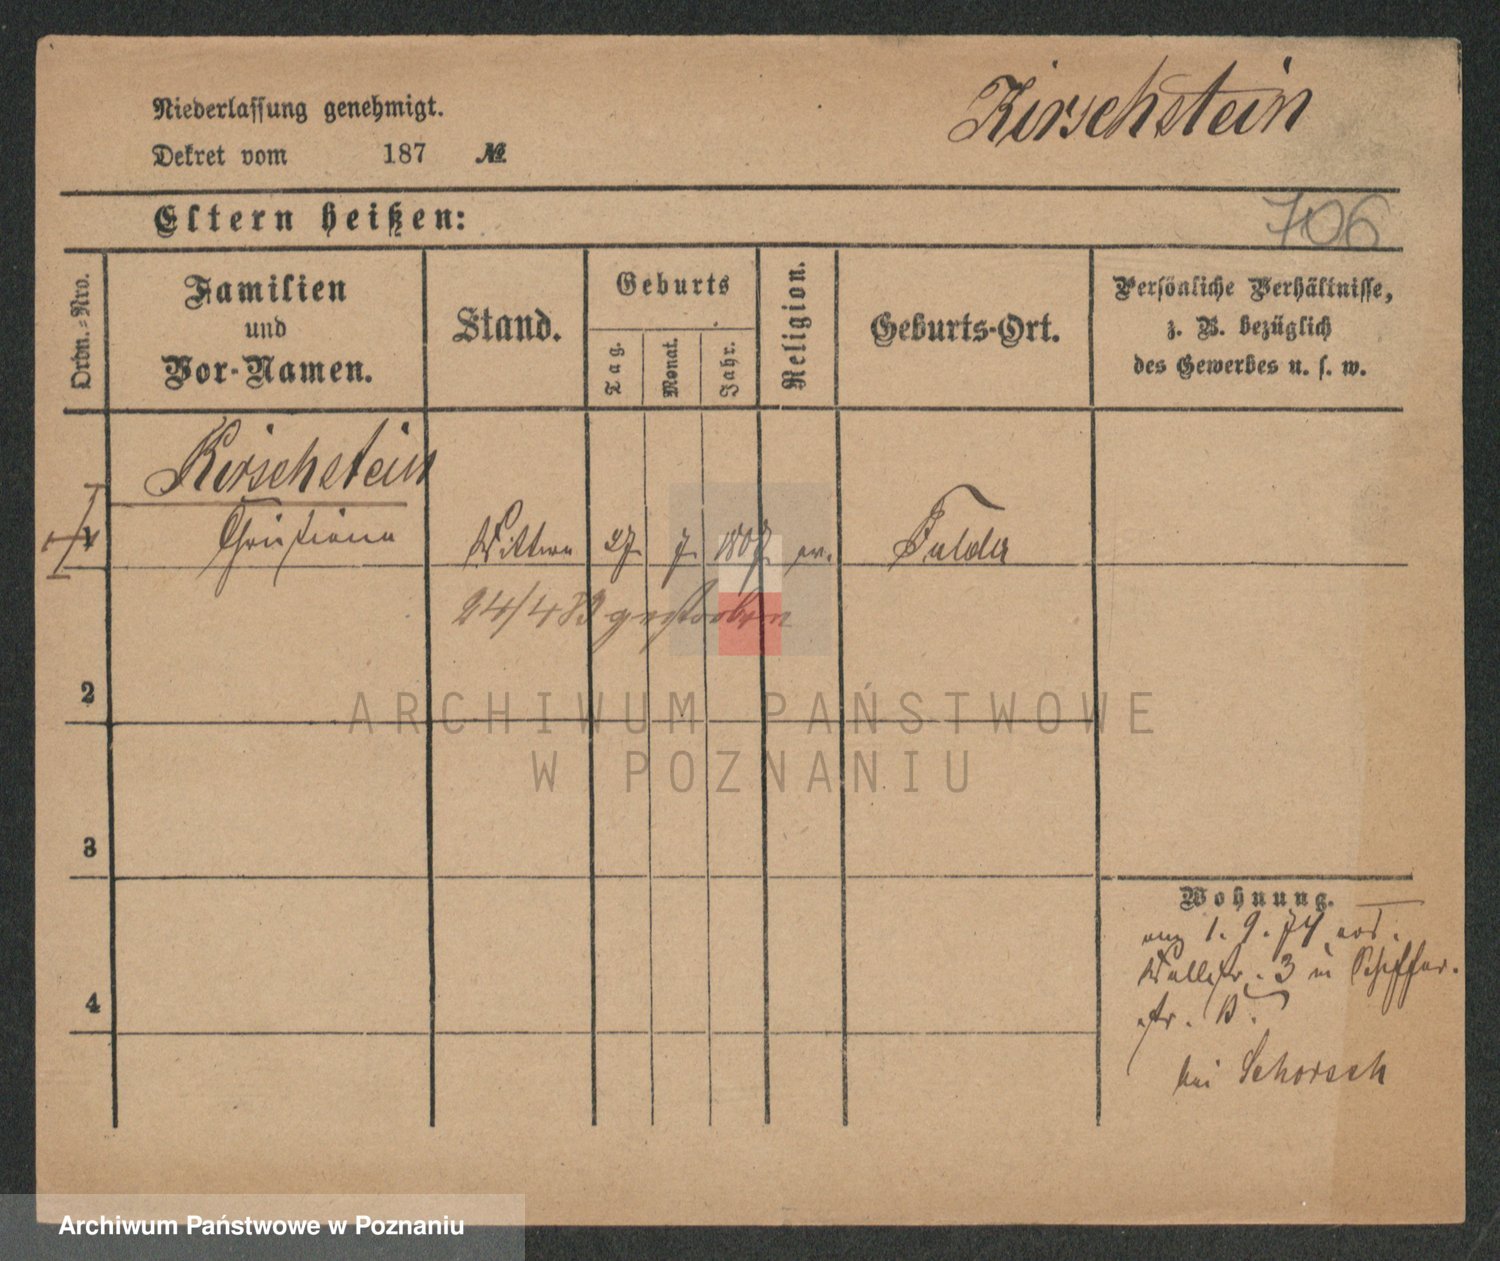 Kirschstein
Niederlassung genehmigt.
Dekret vom 187 №
Eltern heißen:
706
Ordn.-Nro.
Familien
und
Vor-Namen.
Stand.
Geburts
Tag.
Monat.
Jahr.
Religion.
Geburts-Ort.
Persönliche Verhältnisse,
z. B. bezüglich
des Gewerbes u. s. w.
Kirschstein
1 Christiana Wittwe 27. 7. 1807. ev. Fulda
24/4 83 gestorben
2
ARCHIWUM PAŃSTWOWE
W POZNANIU
3
Wohnung.
1. 9. 74
Wallstr. 3 u Schiffer.
str. 13.
bei Schorsch
4
Archiwum Państwowe w Poznaniu